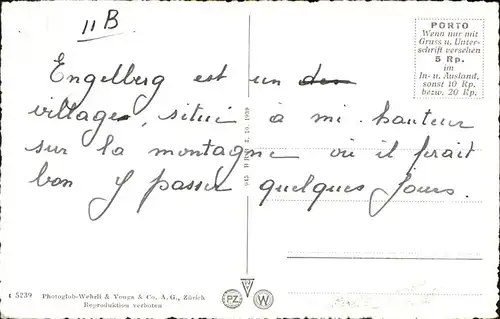 11 B
PORTO
Wenn nur mit
Gruss u. Unter-
schrift versehen
5 Rp.
im
In- u. Ausland,
sonst 10 Rp.
bezw. 20 Rp.
Engelberg est un des
village, situé à mi-hauteur
sur la montagne où il ferait
bon y passer quelques jours.
1 5239 Photoglob-Wehrli & Vouga & Co. A. G., Zürich
Reproduktion verboten
PZ W